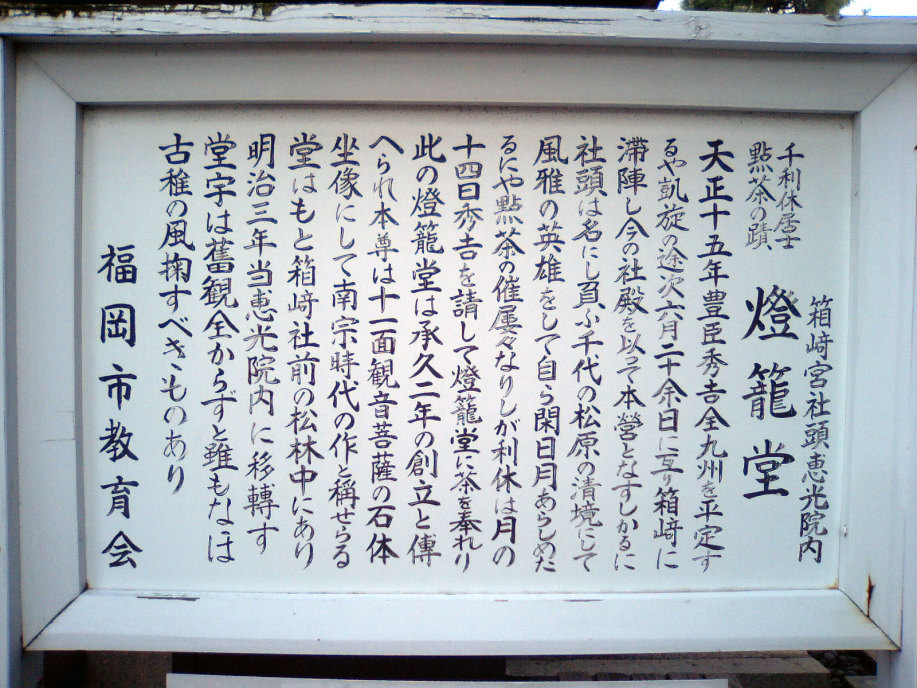 千利休居士
點茶の蹟
箱﨑宮社頭恵光院内
燈籠堂
天正十五年豊臣秀吉全九州を平定す
るや凱旋の途次六月二十余日に亙り箱﨑に
滞陣し今の社殿を以って本營となすしかるに
社頭は名にし負ふ千代の松原の清境にして
風雅の英雄をして自ら閑日月あらしめた
るにや點茶の催屡々なりしが利休は月の
十四日秀吉を請して燈籠堂に茶を奉れり
此の燈籠堂は承久二年の創立と傳
へられ本尊は十一面観音菩薩の石体
坐像にして南宗時代の作と稱せらる
堂はもと箱﨑社前の松林中にあり
明治三年当恵光院内に移轉す
堂宇は舊観全からずと雖もなほ
古稚の風掬すべきものあり
福岡市教育会